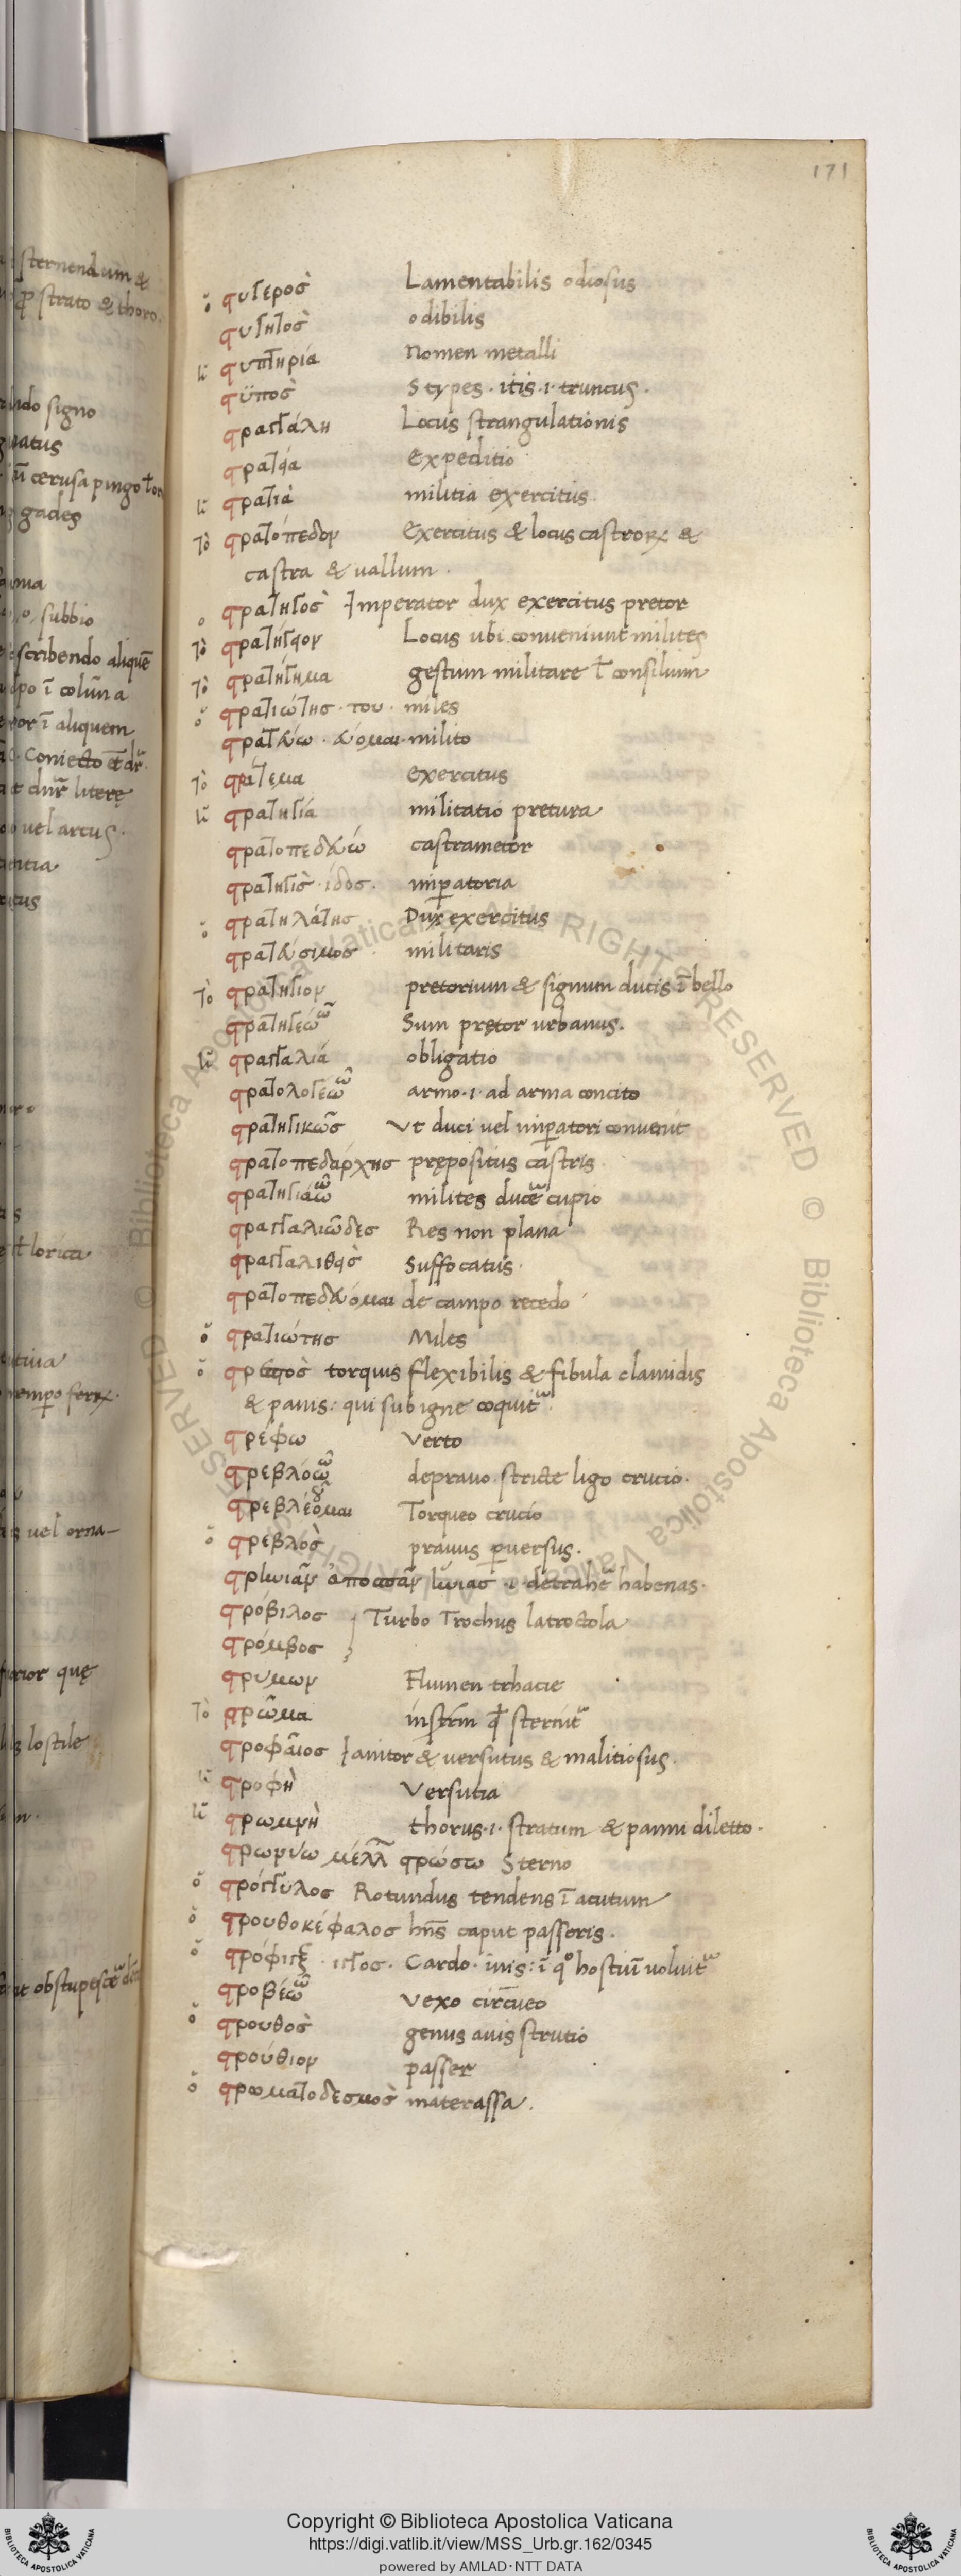 171
ὁ στυγερὸσ Lamentabilis odiosus
στυγητὸσ odibilis
ἡ στυπτηρία Nomen metalli
στύποσ Stypes · itis · i · truncus ·
στραγγάλη Locus strangulationis
στρατεία Expeditio
ἡ στρατιὰ militia exercitus
τὸ στρατόπεδον Exercitus & locus castrorꝝ &
castra & uallum ·
ὁ στρατηγὸσ Imperator dux exercitus pretor
τὸ στρατήγιον Locus ubi conveniunt milites
τὸ στρατήγημα gestum militare ł consilium
ὁ στρατιώτησ · του · miles
στρατεύω · εύομαι · milito
τὸ στράτευμα exercitus
ἡ στρατηγία militatio pretura
στρατοπεδεύω castrametor
στρατηγὶσ · ίδοσ · imꝑatoria
ὁ στρατηλάτησ Dux exercitus
στρατεύσιμοσ militaris
τὸ στρατήγιον pretorium & signum ducis ī bello
στρατηγέω ῶ Sum pretor urbanus ·
ἡ στραγγαλιά obligatio
στρατολογέω ῶ armo · i · ad arma concito
στρατηγικῶσ Vt duci uel imꝑatori convenit
στρατοπεδάρχησ prępositus castris
στρατηγιάω ῶ milites ducē cupio
στραγγαλιῶδεσ Res non plana
Suffocatus ·
στρατοπεδεύομαι de campo recedo
ὁ στρατιώτησ Miles
ὁ στρεπτὸσ torquis flexibilis & fibula clamidis
& panis: qui sub igne coquit᷑
στρέφω Verto
στρεβλόω ῶ depravo · stricte ligo crucio ·
στρεβλέομαι οῦ Torqueo crucio
ὁ στρεβλὸσ pravus ꝑversus ·
i · detrahē habenas ·
στρόβιλοσ } Turbo Trochus latroctola
στρόμβοσ
στρυμων Flumen trhacie
τὸ στρῶμα instrm̄ qđ sternit᷑
στροφαῖοσ Ianitor & versutus & malitiosus ·
ἡ στροφὴ Versutia
ἡ στρωμνὴ thorus · i · stratum & panni diletto ·
στρωννύω μέλλ στρώσω Sterno
ὁ στρόγγυλοσ Rotundus tendens ī acutum
ὁ στρουθοκέφαλοσ hn̄s caput passeris ·
ὁ στρόφιγξ · ιγγοσ · Cardo · inis: ī qͦ hostiū uoluit᷑
στροβέω ῶ vexo circueo
ὁ στρουθὸσ genus auis strutio
στρούθιον passer
ὁ στρωματοδεσμὸσ materassa ·
Copyright © Biblioteca Apostolica Vaticana
https://digi.vatlib.it/view/MSS_Urb.gr.162/0345
powered by AMLAD · NTT DATA